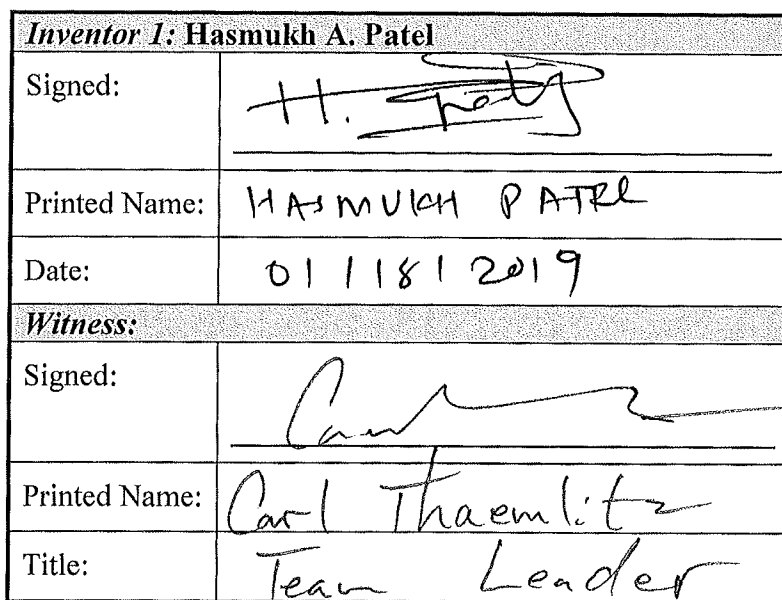 Inventor 1: Hasmukh A. Patel
Signed: H. Patel
Printed Name: HASMUKH PATEL
Date: 01/18/2019
Witness:
Signed:
Printed Name: Carl Thaemlitz
Title: Team Leader